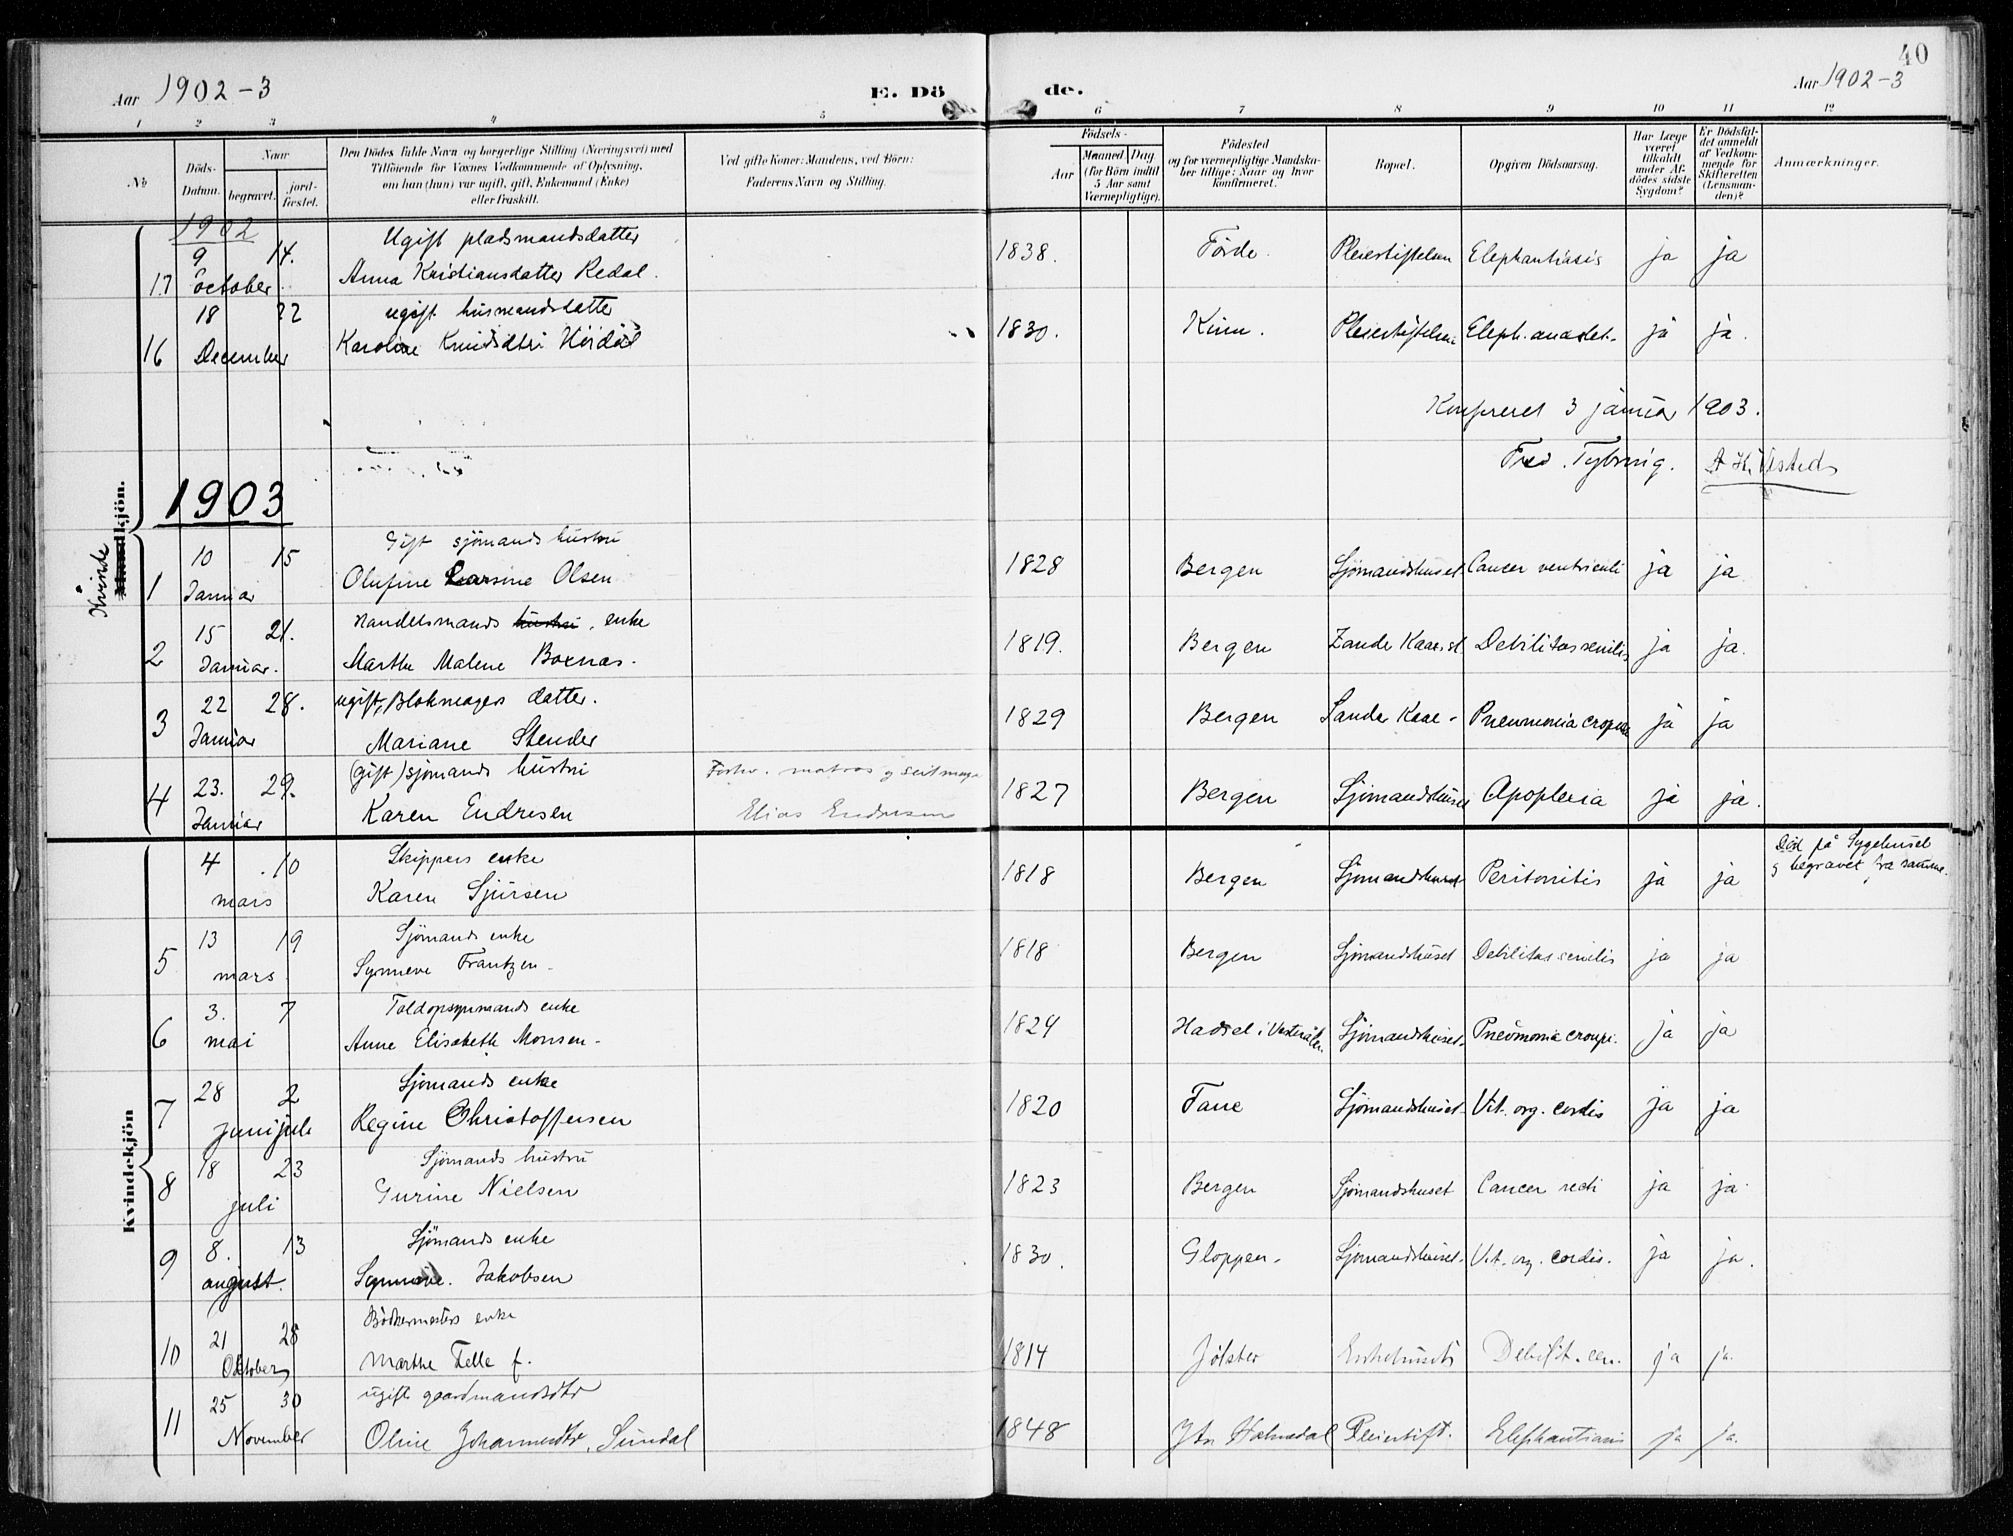 40
Aar 1902-3
E. Döde.
Aar 1902-3
1 2 3 4 5 6 7 8 9 10 11 12
No
Döds-Datum.
Naar
begravet.
jordfæstet.
Den Dödes fulde Navn og borgerlige Stilling (Næringsvei) med
Tilföiende for Voxnes Vedkommende af Oplysning,
om han (hun) var ugift, gift, Enkemand (Enke)
eller fraskilt.
Ved gifte Koner: Mandens, ved Börn:
Faderens Navn og Stilling.
Födsels-
Aar
Maaned Dag
(for Börn indtil
5 Aar samt
Værnepligtige).
Födested
og for værnepligtige Mandskaber tillige: Naar og hvor
konfirmeret.
Bopæl.
Opgiven Dödsaarsag.
Har Læge
været
tilkaldt
under Afdödes sidste
Sygdom?
Er Dödsfaldet anmeldt
af Vedkommende for
Skifteretten
(Lensmanden)?
Anmærkninger.
1902
Ugift pladsmandsdatter
17 9 october 14. Anna Kristiansdatter Redal. 1838. Förde. Pleiestiftelsen Elephantiasis ja ja
ugift husmandsdatte
16 18 December 22 Karoline Knudsdtr 1830. Kinn. Pleiestiftelsen Eleph. ja ja.
3 januar 1903.
1903
Kvinde
Mandkjön.
Gift sjömands hustru
1 10 Januar 15 Olufine Larsine Olsen 1828 Bergen Sjömandshuset Cancer ventriculi ja ja
Handelsmands hustru, enke
2 15 Januar. 21. Marthe Malene Boxnas. 1819. Bergen Zander Kaaes st. Debilitas senilis ja ja.
ugift, Blokmagers datter.
3 22 Januar 28. Mariane Stender 1829 Bergen Sander Kaae - Pneumonia croposa ja ja
(gift) sjömands hustru Forhv. matros og seilmager
4 23. Januar 29. Karen Endresen Elias Endresen 1827 Bergen Sjömandshuset Apoplexia ja ja.
Kvindekjön
Skippers enke
4 mars 10 Karen Sjursen 1818 Bergen Sjömandshuset Peritonitis ja ja Död på Sygehuset
og begravet fra samme.
Sjömands enke
5 13 mars 19 Synneve Frantzen - 1818 Bergen Sjömandshuset Debilitas senilis ja ja
Toldopsynmands enke
6 3. mai 7 Anne Elisabeth Monsen - 1824 Hadsel i Vesterålen Sjömandshuset Pneumonia croup. ja ja
Sjömands enke
7 28 juni 2 juli Regine Christoffersen 1820 Fane Sjömandshuset Vit. org. cordis ja ja
Sjömands hustru
8 18 juli 23 Gurine Nielsen 1823 Bergen Sjömandshuset Cancer recti ja ja
Sjömands enke
9 8. august. 13 Synneve. Jakobsen 1830. Gloppen - Sjömandshuset Vit. org. cordis. ja ja.
Bödkermesters enke
10 21 Oktober 28 Marthe Telle f. 1814 Jölster Enkehuset Debilit. sen. ja ja.
ugift gaardmandsdtr
11 25 November 30 Oline Johannesdtr. Sundal 1848 Ytr Holmedal Pleiestift. Elephantiasis ja ja.